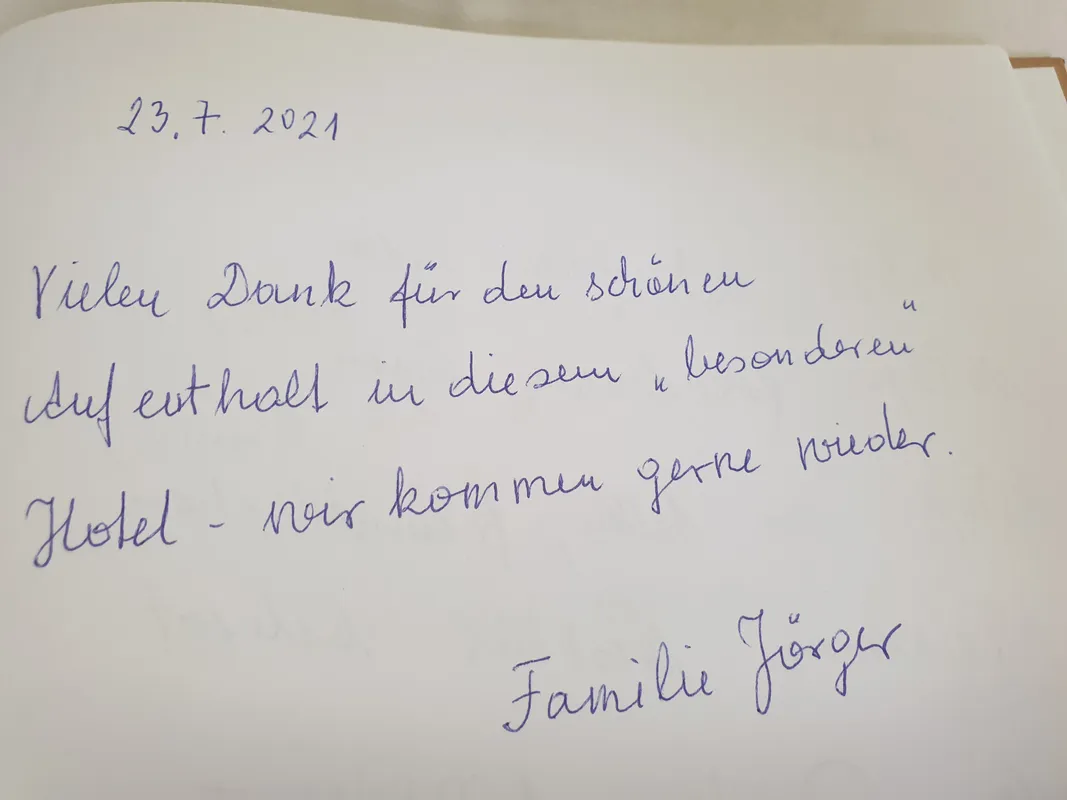 23.7. 2021
Vielen Dank für den schönen
Aufenthalt in diesem „besonderen“
Hotel - wir kommen gerne wieder.
Familie Jörger